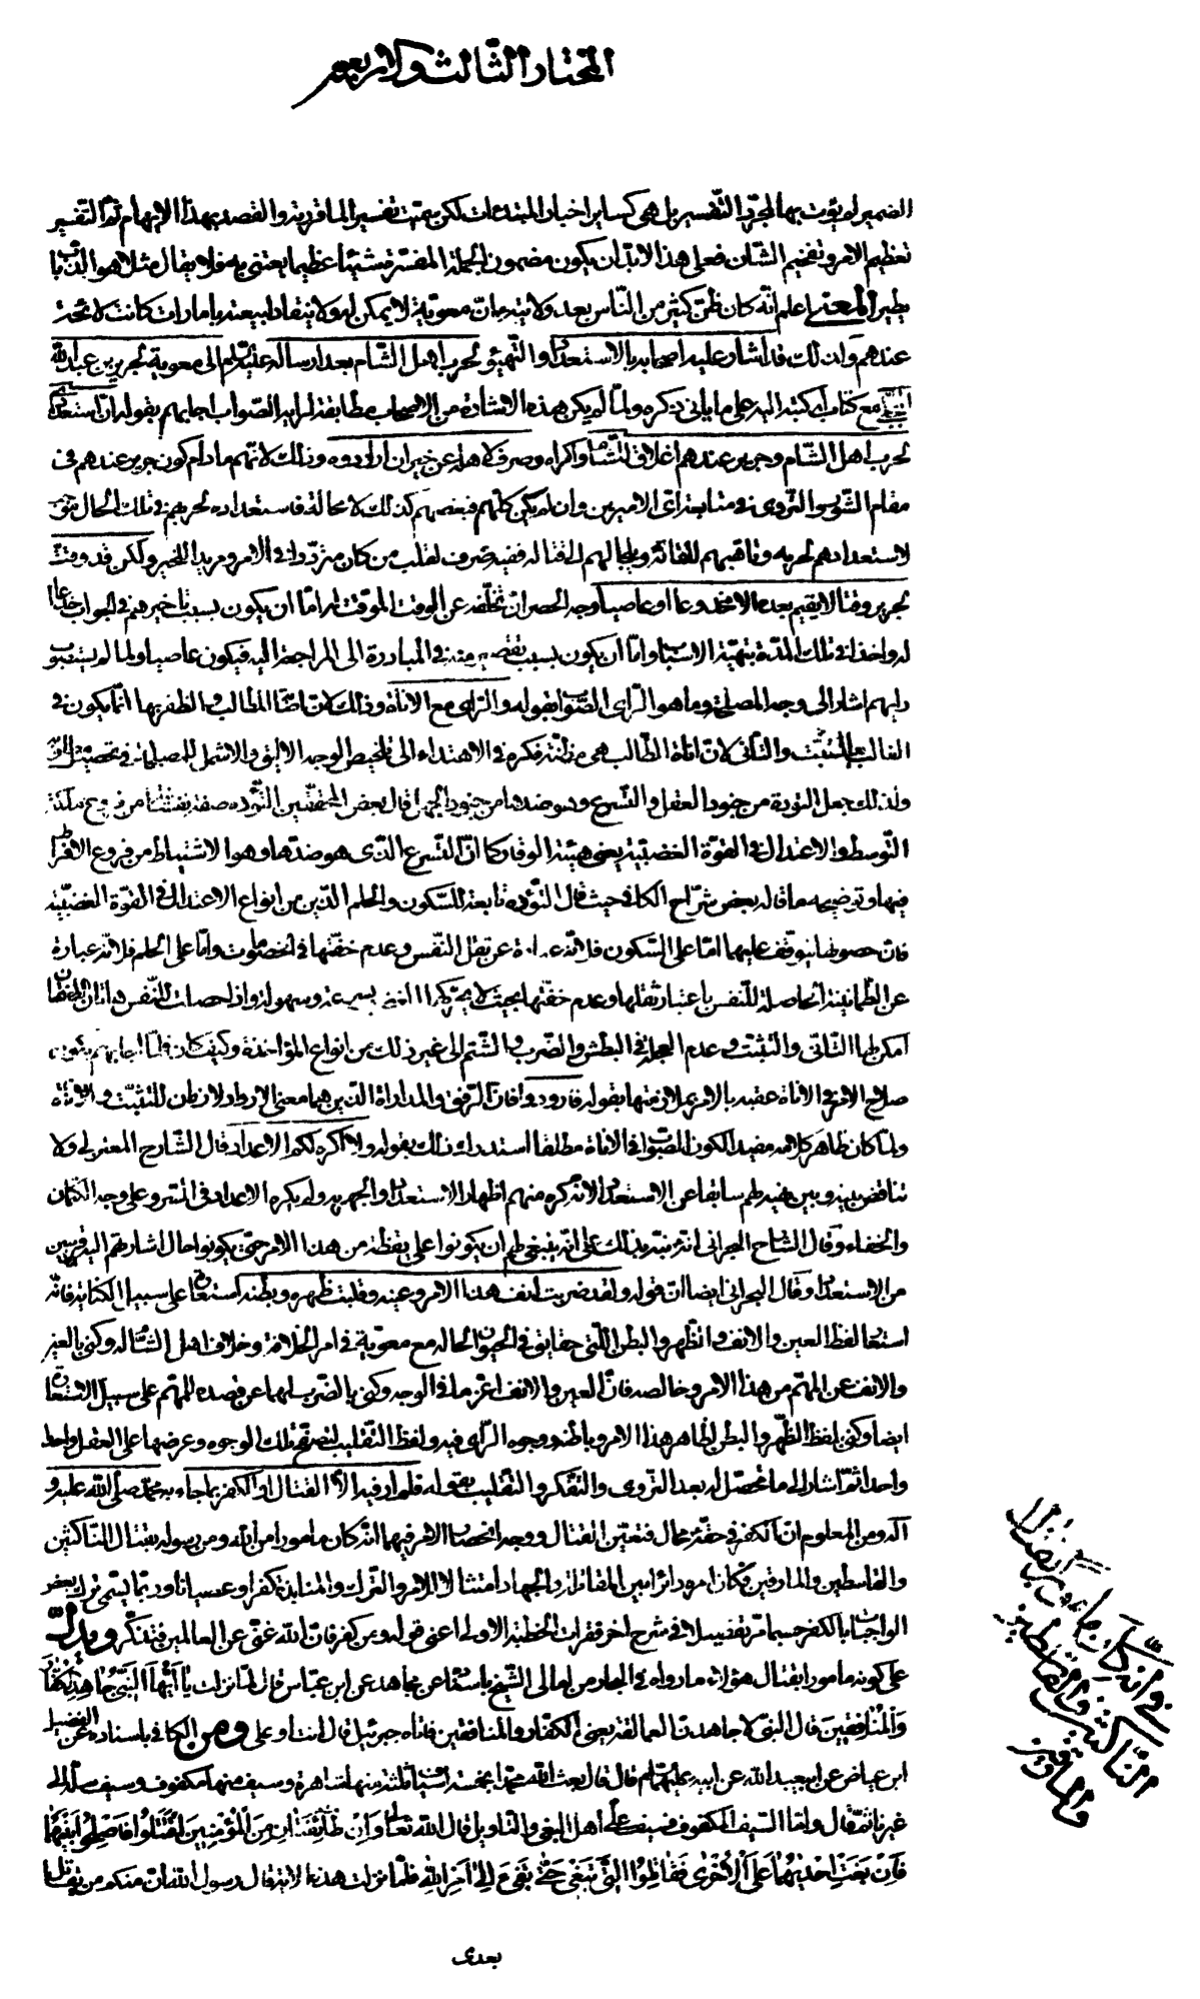 المختار الثالث والاربعون
الضمير لم يؤت بها لمجرد التفسير بل هي كساير اخبار المبتدءات لكن سميت تفسيرا لما قررنه والقصد بهذا الابهام ثم التفسير
تعظيم الامر وتفخيم الشان فعلى هذا لابد ان يكون مضمون الجملة المفسرة شيئا عظيما يعتنى به فلا يقال مثلا هو الذباب
يطير المعنى اعلم انه كان ظن كثير من الناس بعد ولايته ان معوية لا يمكن له ولا ينقاد لبيعته بامارات كانت لائحة
عندهم ولذلك قد اشار عليه اصحابه بالاستعداد والتهيؤ لحرب اهل الشام بعد ارساله عليه السلم الى معوية لجرير بن عبد الله
البجلي مع كتاب له كتبه اليه على ما ياتى ذكره ولما لم يكن هذه الاشارة من الاصحاب مطابقة لرايه الصواب اجابهم بقوله ان استعدادى
لحرب اهل الشام وجرير عندهم اغلاق للشام واكراه وصرف لاهله عن خير ان ارادوه وذلك لانهم ما دام كون جرير عندهم فى
مقام الشور والتروى فى متابعة اى الاميرين وان لم يكن كلهم فبعضهم كذلك لا محالة فاستعداده لحربهم فى تلك الحال موجب
لاستعدادهم لحربه وتاهبهم للقائه ويلجائهم الى قتاله ففيه صرف لقلب من كان مترددا فى الامر ومريدا للخير ولكن قد وقت
لجرير وقتا لا يقيم بعده الا مخدوعا او عاصيا وجه الحصر ان تخلفه عن الوقت الموقت له اما ان يكون بسبب تاخيرهم فى الجواب خداعا
له واخذا فى تلك المدة بتهيئة الاسباب واما ان يكون بسبب تقصير منه فى المبادرة الى المراجعة اليه فيكون عاصيا ولما لم يستصوب
رايهم اشار الى وجه المصلحة وما هو الراى الصواب بقوله والراى مع الاناة وذلك لان اصابة المطالب والظفر بها انما يكون فى
الغالب بالتثبت والتانى لان اناة الطالب هى مظنة فكره فى الاهتداء الى تلخيص الوجه الاليق والاشمل للمصلحة فى تحصيل
ولذلك جعل التؤدة من جنود العقل والتسرع وهو ضدها من جنود الجهل قال بعض المحققين التؤدة صفة نفسانية من فروع ملكة
التوسط والاعتدال فى القوة الغضبية يعنى هيئة الوقار كما ان التسرع الذى هو ضدها وهو الاشتياط من فروع الافراط
فيها وتوضيحه ما قاله بعض شراح الكافى حيث قال التؤدة تابعة للسكون والحلم الذين من انواع الاعتدال فى القوة الغضبية
فان حصولها يتوقف عليهما اما على السكون فلانه عبارة عن ثقل النفس وعدم خفتها فى الخصومات واما على الحلم فلانه عبارة
عن الطمانينة الحاصلة للنفس باعتبار ثقلها وعدم خفتها بحيث لا يحركها الغضب بسرعة وسهولة واذا حصلت للنفس هاتان الصفتان
امكن لها التانى والتثبت وعدم العجلة فى البطش والضرب والشتم الى غير ذلك من انواع المؤاخذة وكيف كان فلما اجابهم بكون
صلاح الامر فى الاناة عقبه بالامر بملازمتها بقوله فارودوا فان الرفق والمداراة الذين هما معنى الارواد لازمان للتثبت والاناة
ولما كان ظاهر كلامه مفيدا لكون الصواب فى الاناة مطلقا استدرك ذلك بقوله ولا اكره لكم الاعداد قال الشارح المعتزلى ولا
تناقض بينه وبين نهيه لهم سابقا عن الاستعداد لانه كره منهم اظهار الاستعداد والجهر به ولم يكره الاعداد فى السر وعلى وجه الكتمان
والخفاء وقال الشارح البحرانى انه نبه بذلك على انه ينبغى لهم ان يكونوا على يقظة من هذا الامر حتى يكونوا حال اشارتهم اليه قريبين
من الاستعداد وقال البحرانى ايضا ان قوله ولقد ضربت انف هذا الامر وعينه وقلبت ظهره وبطنه استعارة على سبيل الكناية فانه
استعار لفظ العين والانف والظهر والبطن التى حقايق فى الحيوان لحاله مع معوية فى امر الخلافة وخلاف اهل الشام له وكنى بالعين
والانف عن المهم من هذا الامر وخالصه فان العين والانف اعز ما فى الوجه وكنى بالضرب لهما عن قصده للمهم على سبيل الاستعارة
ايضا وكنى بلفظ الظهر والبطن لظاهر هذا الامر وباطنه ووجوه الراى فيه ولفظ التقليب لتصفح تلك الوجوه وعرضها على العقل واحدا
واحدا ثم اشار الى ما تحصل له بعد التروى والتفكر والتقليب بقوله فلم ار فيه الا القتال او الكفر بما جاء به محمد صلى الله عليه و
آله ومن المعلوم ان الكفر فى حقه محال فتعين القتال ووجه انحصار الامر فيهما انه كان مامورا من الله ومن رسوله بقتال الناكثين
والقاسطين والمارقين فكان امره دائرا بين المقاتلة والجهاد امتثالا للامر والترك والمنابذة كفرا وعصيانا وربما يسمى ترك بعض
الواجبات بالكفر حسبما مر تفصيلا فى شرح اخر فقرات الخطبة الاولى اعنى قوله ومن كفر فان الله غنى عن العالمين فتذكر ويدل
على كونه مامورا بقتال هؤلاء ما رواه فى البحار من امالى الشيخ باسناده عن مجاهد عن ابن عباس قال لما نزلت يا ايها النبى جاهد الكفار
والمنافقين قال النبى لاجاهدن العمالقة يعنى الكفار والمنافقين فاتاه جبرئيل قال انت او على ومن الكافى باسناده عن الفضيل
ابن عياض عن ابى عبد الله عن ابيه عليهما السلم قال قال بعث الله محمدا بخمسة اسياف ثلثة منها شاهرة وسيف منها مكفوف وسيف سله الى
غيرنا ثم قال واما السيف المكفوف فسيف على اهل البغى والتاويل قال الله تعالى وَاِنْ طَائِفَتَانِ مِنَ الْمُؤْمِنِينَ اقْتَتَلُوا فَاَصْلِحُوا بَيْنَهُمَا
فَاِنْ بَغَتْ اِحْدٰيهُمَا عَلَى الْاُخْرٰى فَقَاتِلُوا الَّتِى تَبْغِى حَتّٰى تَفِىءَ اِلٰى اَمْرِ اللّٰهِ فلما نزلت هذه الاية قال رسول الله ان منكم من يقاتل
بعدى
فى انه كان مامورا بقتال
الناكثين والقاسطين
والمارقين